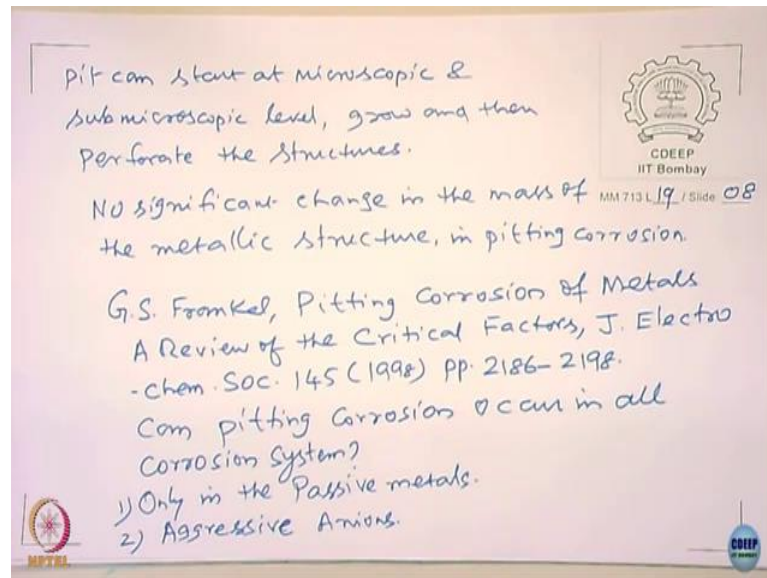 pit can start at microscopic &
submicroscopic level, grow and then
perforate the structures.
CDEEP
IIT Bombay
MM 713 L 19 / Slide 08
No significant change in the mass of
the metallic structure, in pitting corrosion.
G.S. Frankel, Pitting Corrosion of Metals
A Review of the Critical Factors, J. Electro
-chem. Soc. 145 (1998) pp. 2186-2198.
Can pitting corrosion occur in all
corrosion system?
1) Only in the Passive metals.
2) Aggressive Anions.
NPTEL
CDEEP